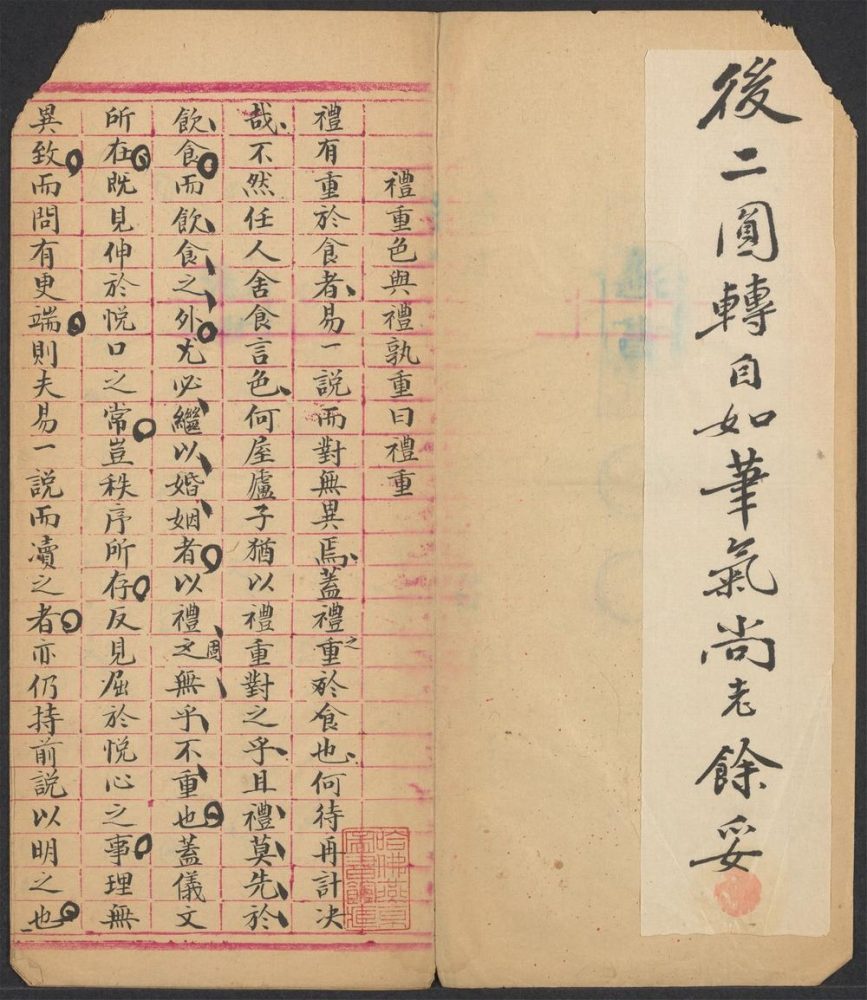 後二圓轉自如筆氣尚老餘妥
禮重色與禮孰重曰禮重
禮有重於食者易一說而對無異焉蓋禮之重於食也何待再計決
哉不然任人舍食言色何屋廬子猶以禮重對之乎且禮莫先於
飲食而飲食之外尤必繼以婚姻者以禮固無乎不重也蓋儀文
所在既見伸於悅口之常豈秩序所存反見屈於悅心之事理無
異致而問有更端則夫易一說而瀆之者亦仍持前說以明之也
哈佛燕京
圖書館